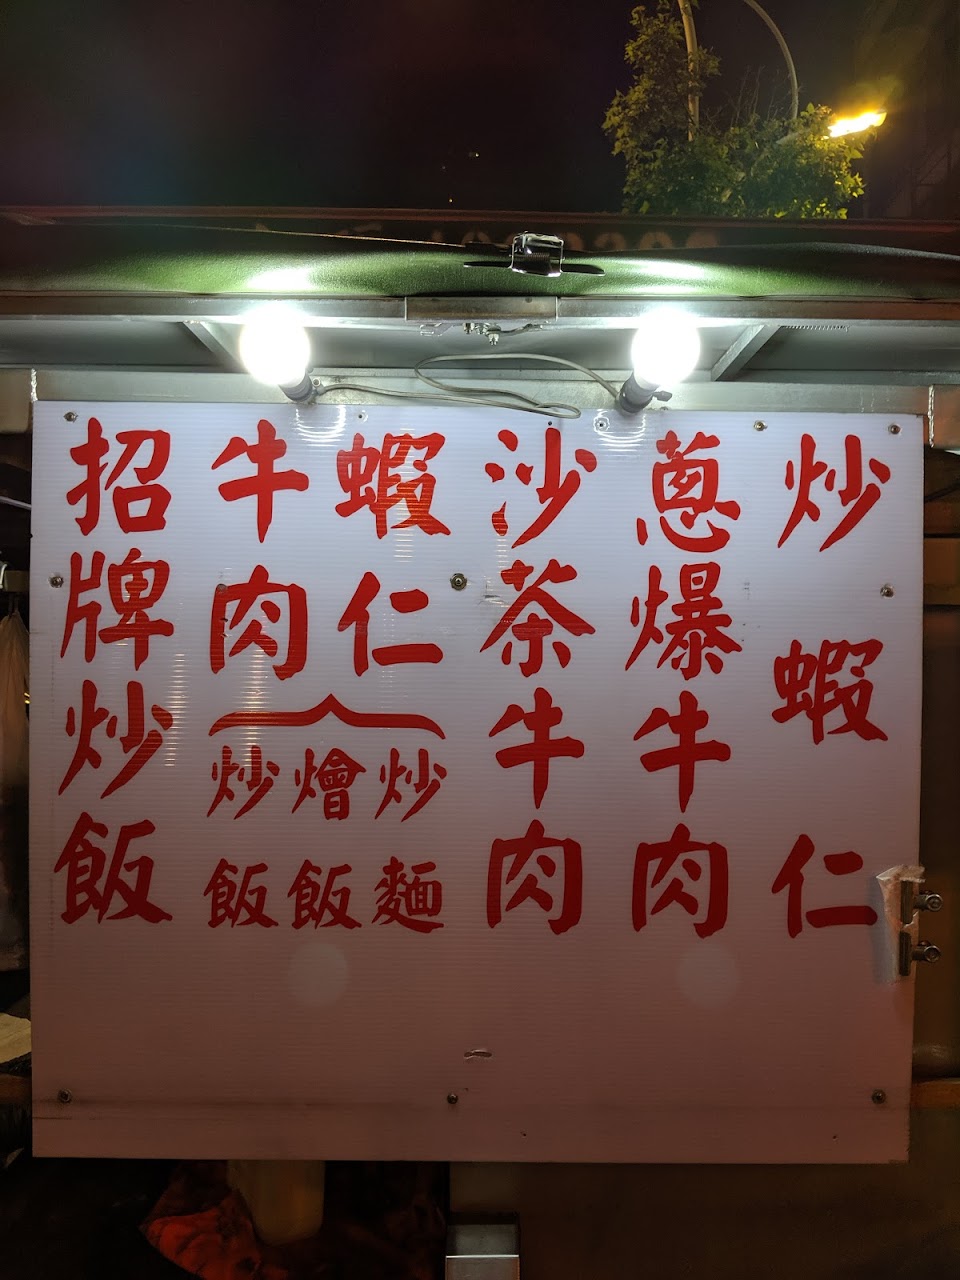 炒蝦仁
蔥爆牛肉
沙茶牛肉
蝦仁
牛肉
炒麵
燴飯
炒飯
招牌炒飯